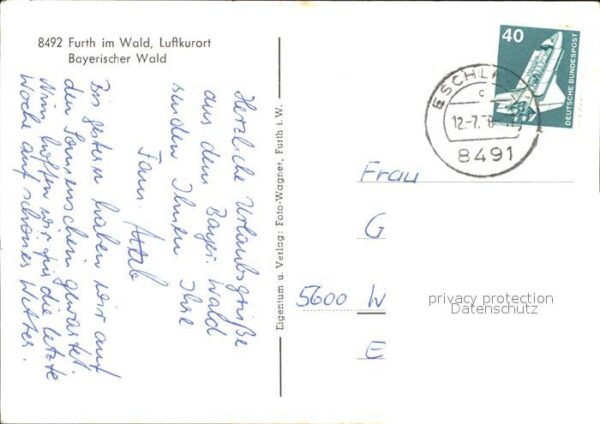 8492 Furth im Wald, Luftkurort
Bayerischer Wald
Herzliche Urlaubsgrüße
aus dem Bayer. Wald
senden Ihnen Ihre
Fam.
Bis gestern haben wir auf
den Sonnenschein gewartet.
Nun hoffen wir für die letzte
Woche auf schönes Wetter.
Eigentum u. Verlag: Foto-Wagner, Furth i. W.
40
DEUTSCHE BUNDESPOST
c
12.-7.
8491
Frau
G
5600 W
E
privacy protection
Datenschutz